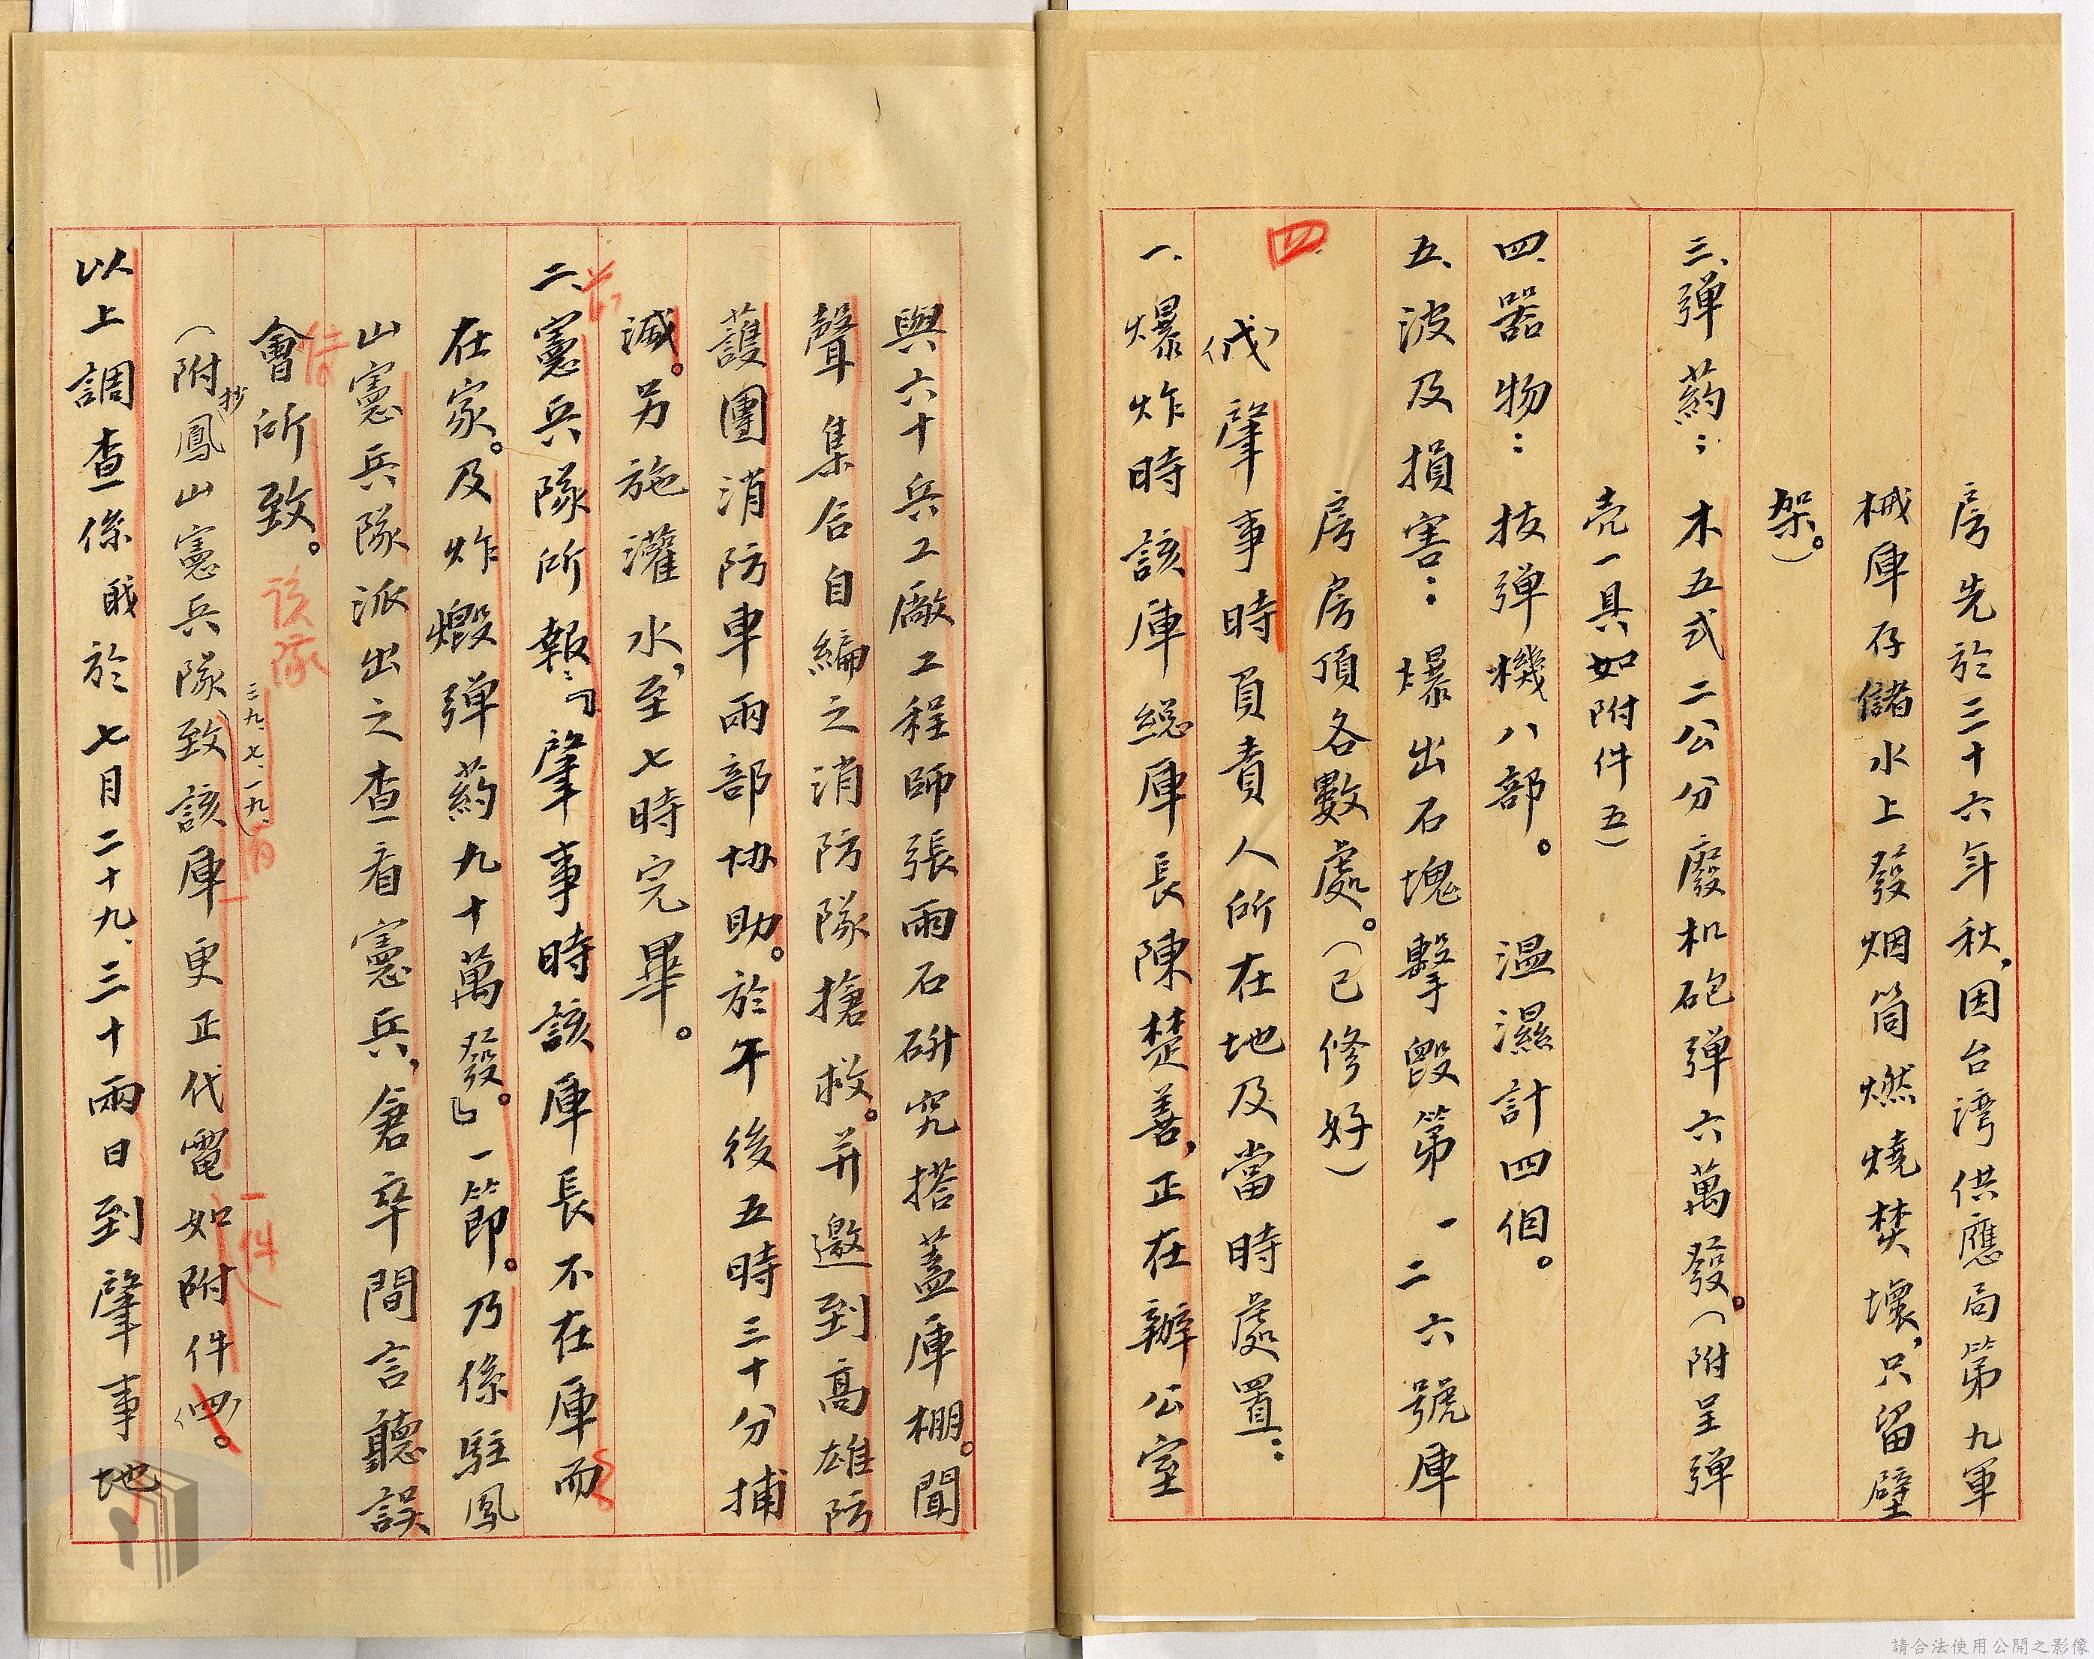 房先於三十六年秋，因台湾供應局第九軍
械庫存儲水上發烟筒燃燒焚壞，只留壁
架。）
三、弹药：木五式二公分廢机砲弹六萬發。（附呈弹
壳一具如附件五）
四、器物：技弹機八部。　温濕計四個。
五、波及損害：爆出石塊擊毀第一二六號庫
房房頂各數處。（已修好）
四
肇事時負責人所在地及當時處置：
一、爆炸時該庫総庫長陳楚善，正在辦公室
與六十兵工廠工程師張雨石研究搭蓋庫棚。聞
聲集合自編之消防隊搶救。并邀到高雄防
護團消防車兩部协助。於午後五時三十分捕
滅。另施灌水，至七時完畢。
二、憲兵隊所報：『肇事時該庫長不在庫而
在家。及炸燬弹药九十萬發。』一節。乃係駐鳳
山憲兵隊派出之查看憲兵，倉卒間言聽誤
會所致。該隊
三九、七、一九、
（附抄鳳山憲兵隊致該庫更正代電一件如附件四）。
以上調查係戝於七月二十九、三十兩日到肇事地
請合法使用公開之影像